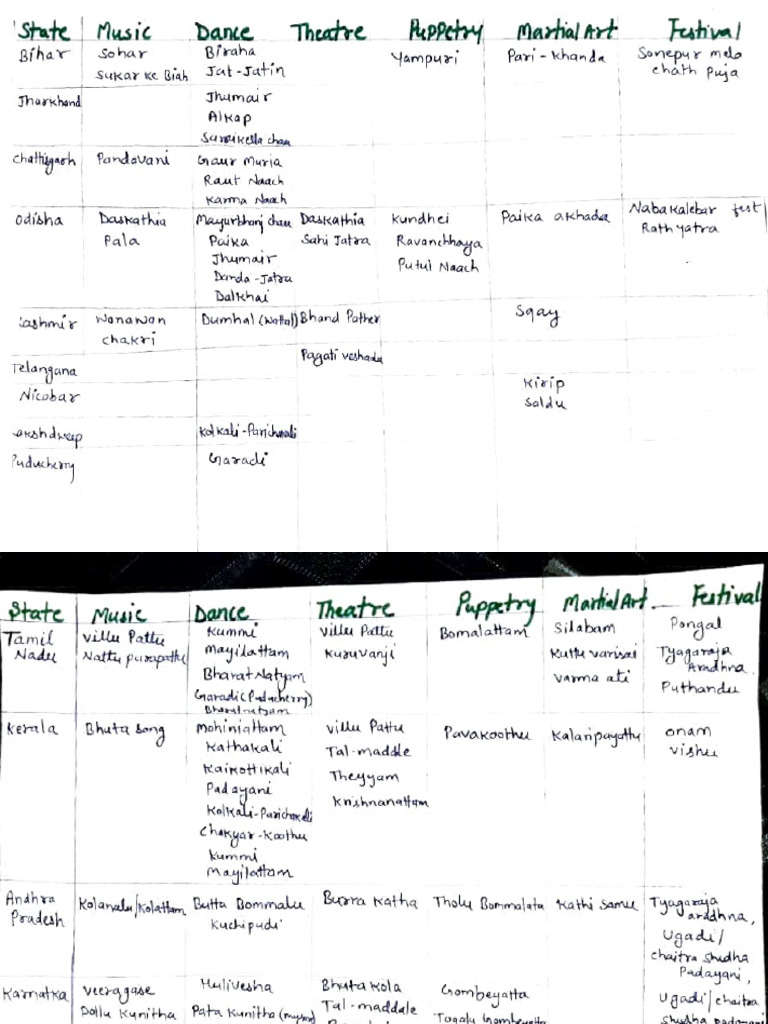 State Music Dance Theatre Puppetry Martial Art Festival
Bihar Sohar Biraha Yampuri Pari-Khanda Sonepur mela
Sukar ke Biah Jat-Jatin chath Puja
Jharkhand Jhumair
Alkap
Chattisgarh Pandavani Gaur Muria
Raut Naach
Karma Naach
Odisha Daskathia Mayurbhanj chau Daskathia Kundhei Paika akhada Nabakalebar fest
Pala Paika Sahi Jatra Ravanchhaya Rath yatra
Jhumair Putul Naach
Danda-Jatra
Dalkhai
Kashmir Wanawan Dumhal (Wattal) Bhand Pather Sqay
chakri
Telangana Pagati veshadu
Nicobar Kirip
Saldu
akshdweep Kolkali-Parichakali
Puducherry Garadi
State Music Dance Theatre Puppetry Martial Art Festival
Tamil Villu Pattu Kummi Villu Pattu Bomalattam Silabam Pongal
Nadu Nattu purapattu Mayilattam Kuruvanji Kuttu varisai Tyagaraja
Bharat Natyam Varma ati Aradhna
Garadi (Puducherry) Puthandu
Bharatnatyam
Kerala Bhuta song Mohiniattam Villu Pattu Pavakoothu Kalaripayattu onam
Kathakali Tal-maddle vishu
Kaikottikali Theyyam
Padayani Krishnanattam
Kolkali-Parichakali
Chakyar-Koothu
Kummi
Mayilattam
Andhra Kolanalu/Kolattam Butta Bommalu Burra Katha Tholu Bommalata Kathi Samu Tyagaraja
Pradesh Kuchipudi aradhna,
Ugadi/
chaitra Shudha
Padayani,
Karnatka Veeragase Hulivesha Bhuta Kola Gombeyatta Ugadi/chaitra
Dollu Kunitha Pata Kunitha Tal-maddale Togalu Gombeyatta Shudha padayani